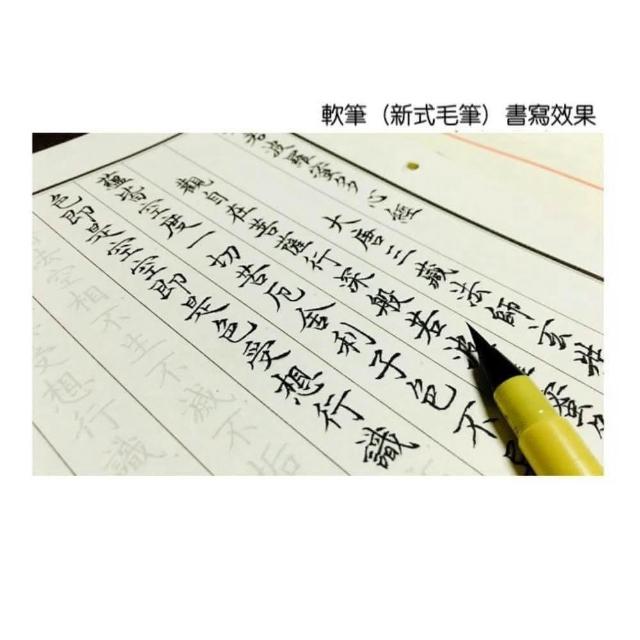 軟筆（新式毛筆）書寫效果
波羅蜜多心經
大唐三藏法師玄奘
觀自在菩薩行深般若波
蘊皆空度一切苦厄舍利子色不
色即是空空即是色受想行識
法空相不生不滅不垢
受想行識